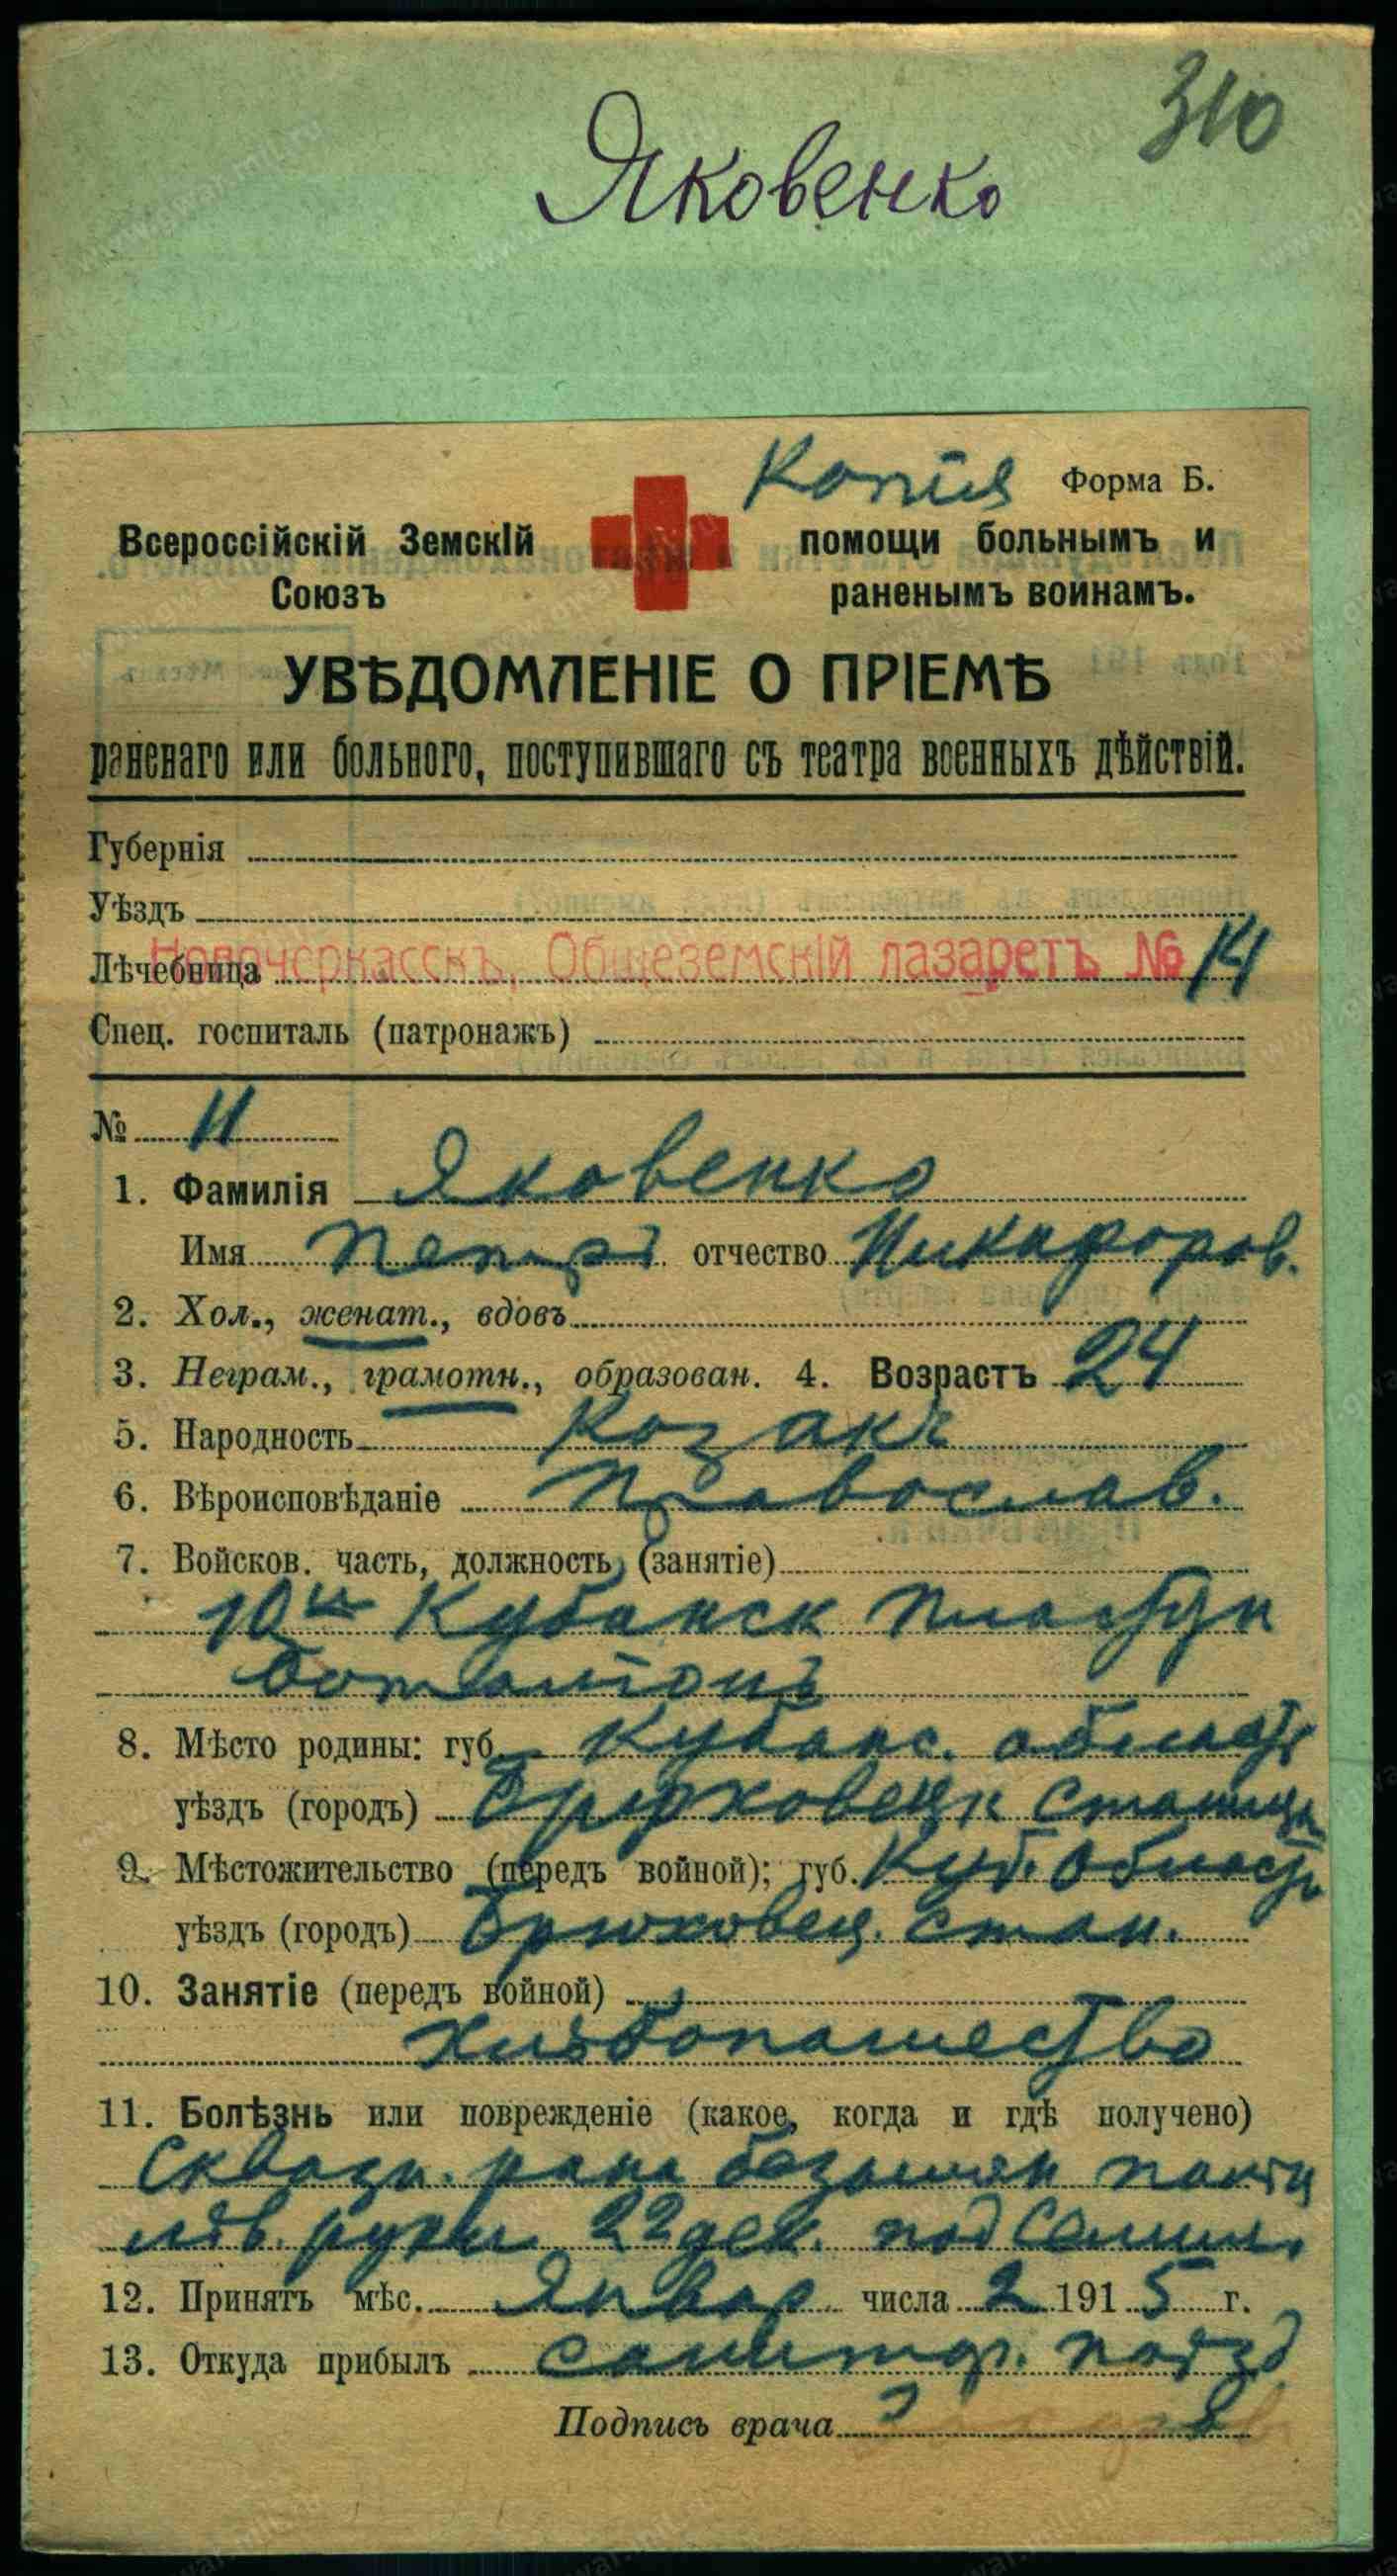 310
Яковенко
Копія Форма Б.
Всероссійскій Земскій помощи больнымъ и
Союзъ раненымъ воинамъ.
УВѢДОМЛЕНІЕ О ПРІЕМѢ
раненаго или больного, поступившаго съ театра военныхъ дѣйствій.
Губернія
Уѣздъ
Лѣчебница Новочеркасскъ, Общеземскій лазаретъ № 14
Спец. госпиталь (патронажъ)
№ 11
1. Фамилія Яковенко
Имя Петръ отчество Никифоров.
2. Хол., женат., вдовъ
3. Неграм., грамотн., образован. 4. Возрастъ 24
5. Народность Козакъ
6. Вѣроисповѣданіе Православ.
7. Войсков. часть, должность, (занятіе)
10й Кубанск Пластун
баталіонъ
8. Мѣсто родины: губ. Кубанс. област
уѣздъ (городъ) Брюховецк станица
9. Мѣстожительство (передъ войной); губ. Куб. Област
уѣздъ (городъ) Брюховец. стан.
10. Занятіе (передъ войной)
хлѣбопашество
11. Болѣзнь или поврежденіе (какое, когда и гдѣ получено)
Сквозн. рана безымян пальца
лѣв. руки 22 дек. под
12. Принятъ мѣс. Январ числа 2 1915 г.
13. Откуда прибылъ санитар. поѣзд
Подпись врача